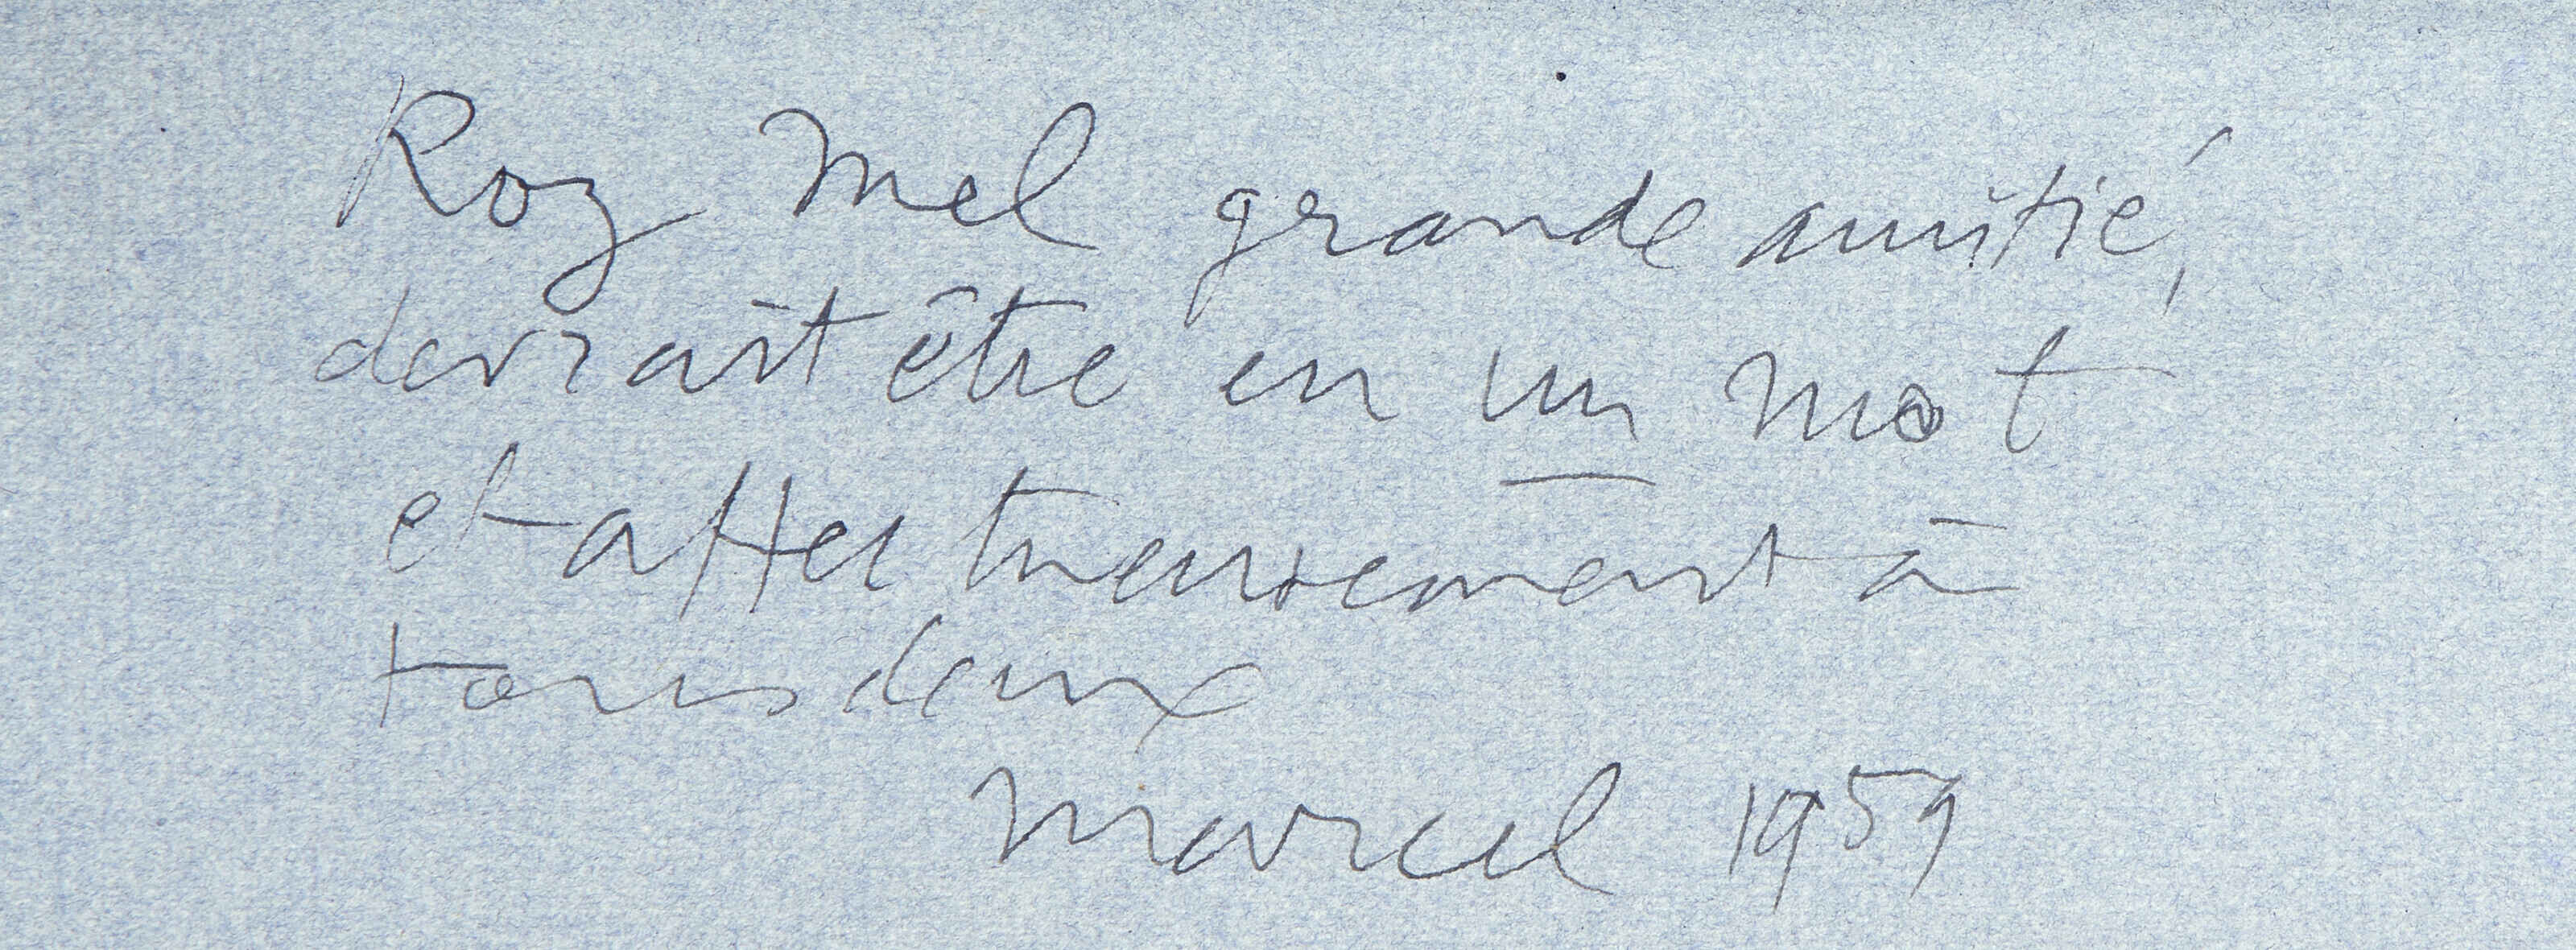 Roz Mel grande amitié,
devrait être en un mot
et affectueusement à
tous deux
Marcel 1959